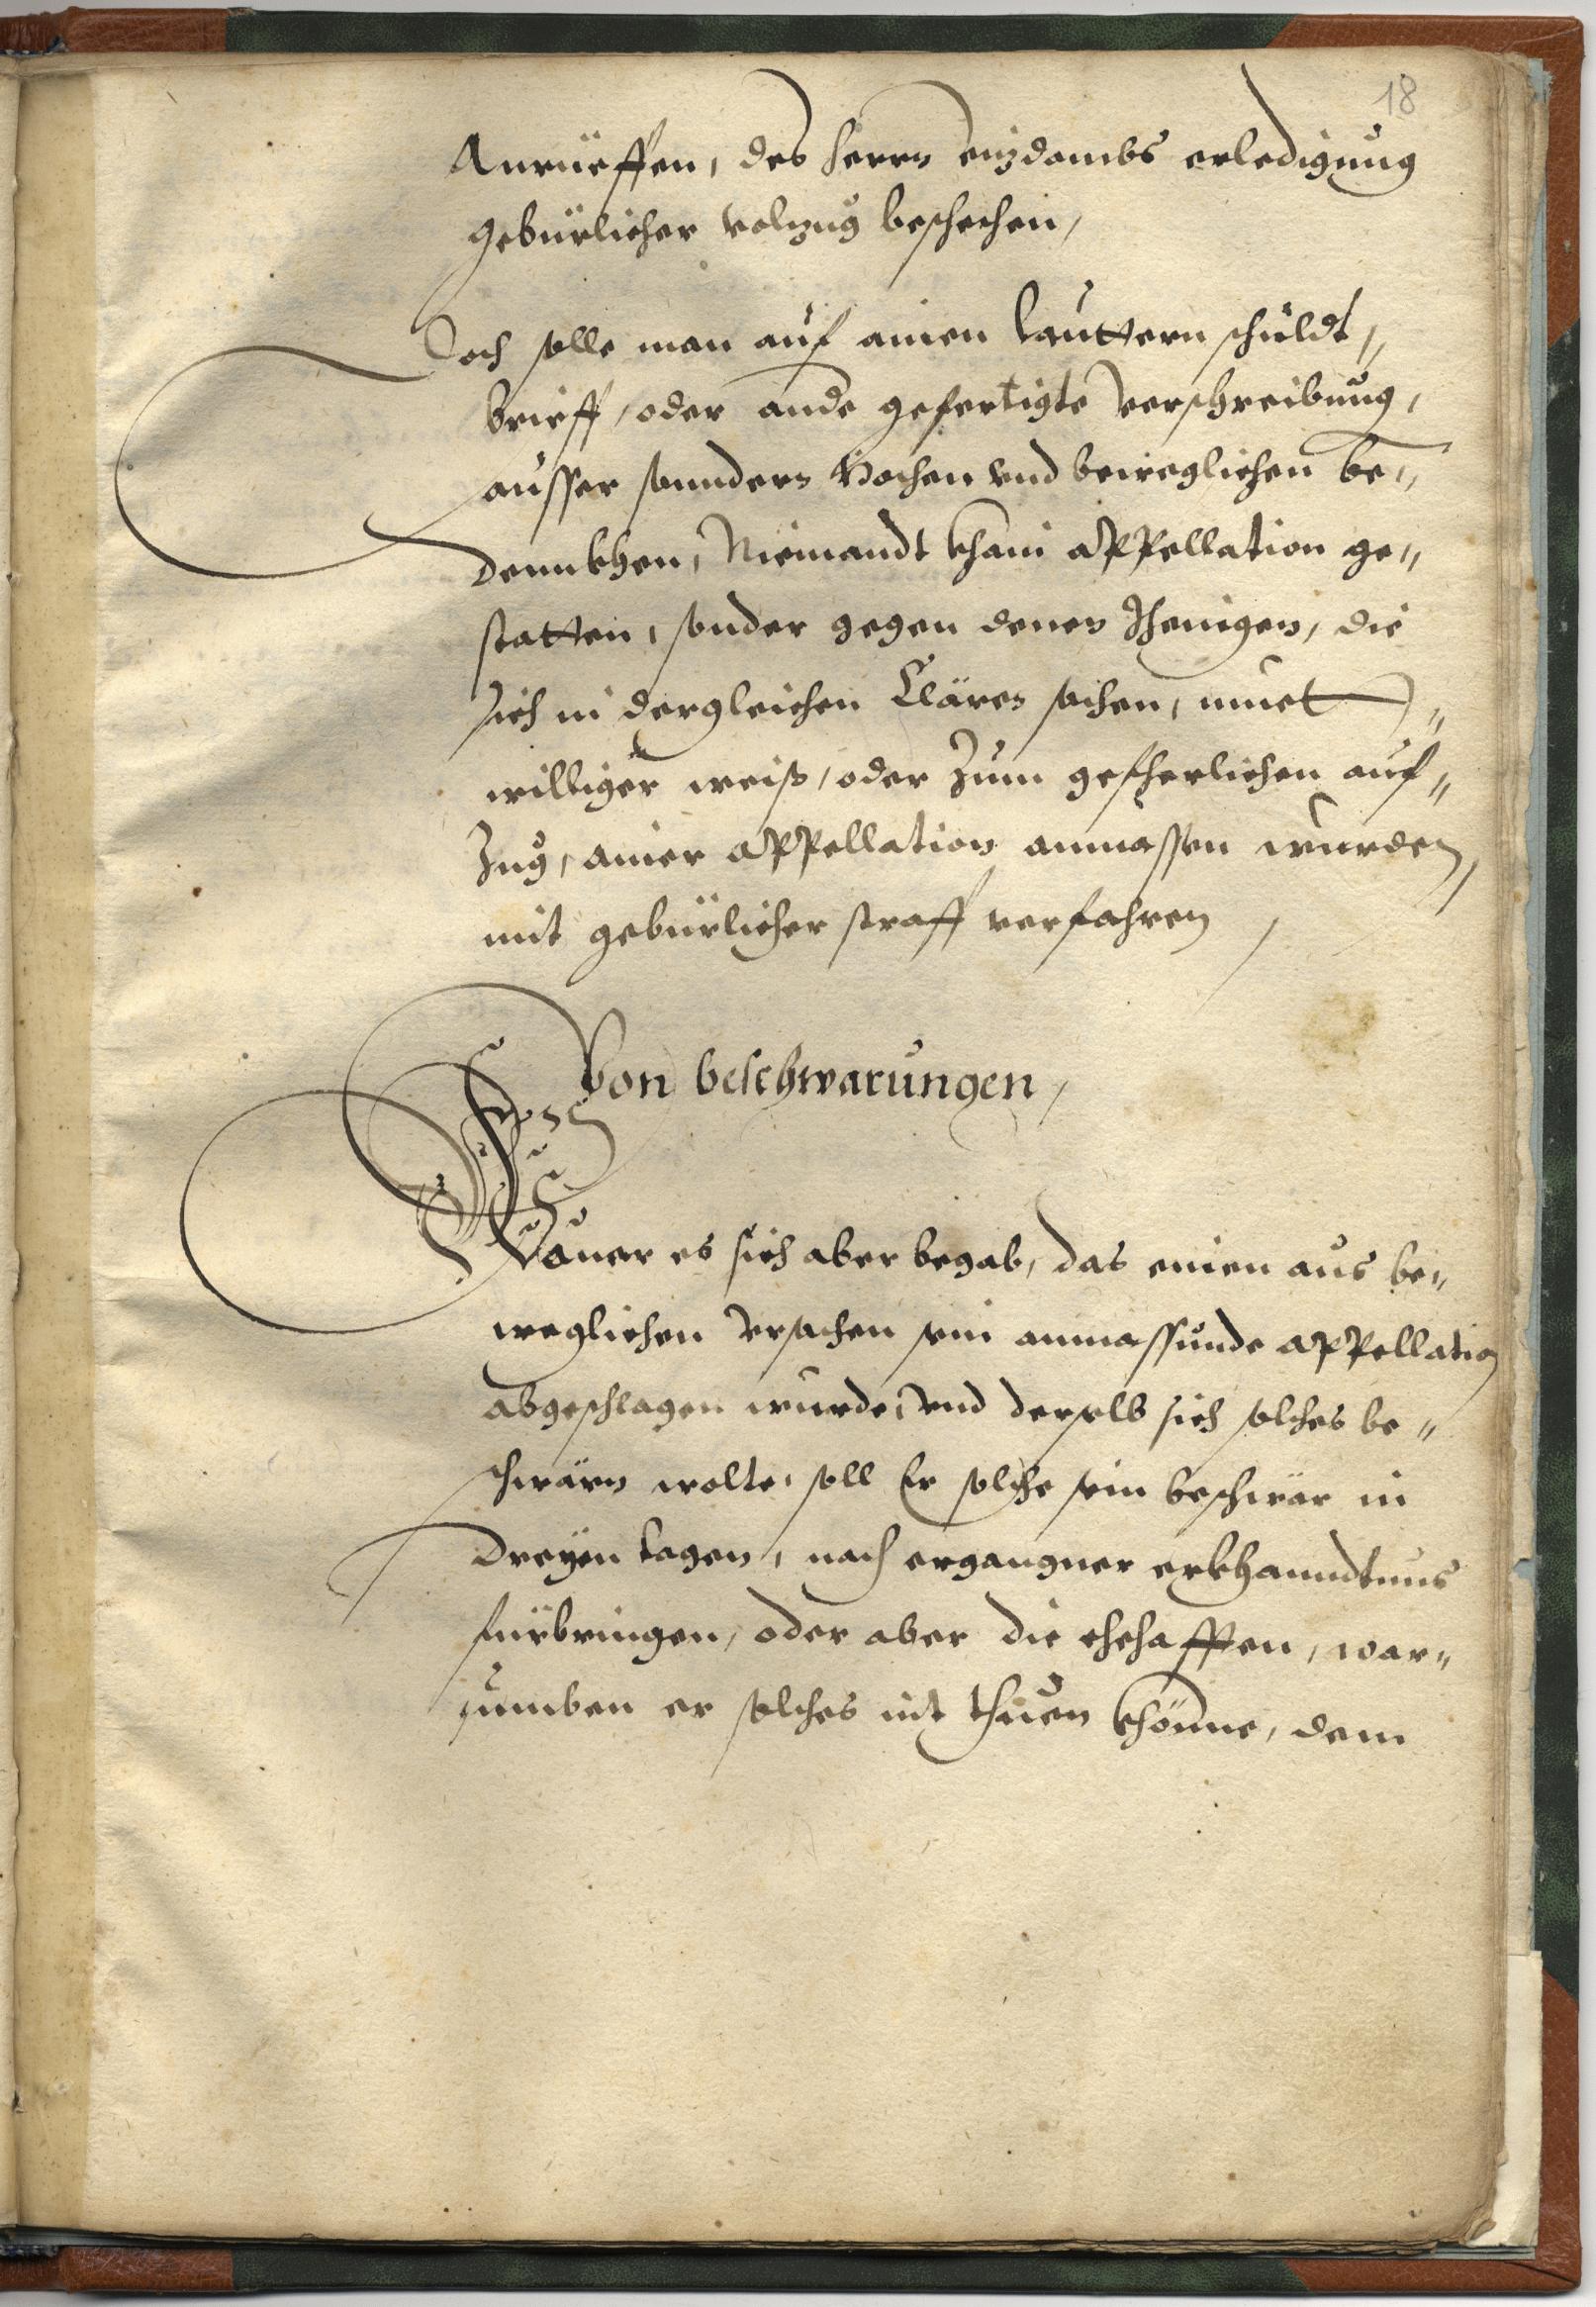 18
Anrüeffen, des herrn vizdombs erledigung
gebürlicher volzug beschechen,
Doch solle man auf ainen lauttern schuldt,,
brieff, oder ande gefertigte verschreibung,
ausser sonnders hochen vnd beweglichen be,,
dennkhen, Niemandt khain appellation ge,,
statten, sonder gegen denen Jhenigen, die
sich in dergleichen Clären sachen, muet,,
williger weiß, oder zum gefherlichen auf,,
zug, ainer appellation anmassen wurden,
mit gebürlicher straff verfahren,
Von beschwarungen,
Wouer es sich aber begab, das einen aus be,,
weglichen vrsachen sein anmassunde appellation
abgeschlagen wurde, vnd derselb sich solches be,,
schwärn wolte, soll Er solche sein beschwär in
dreyen tagen, nach erganngner erkhanndtnus
fürbringen, oder aber die ehehafften, war,,
umben er solches nit thuen khönne, dem